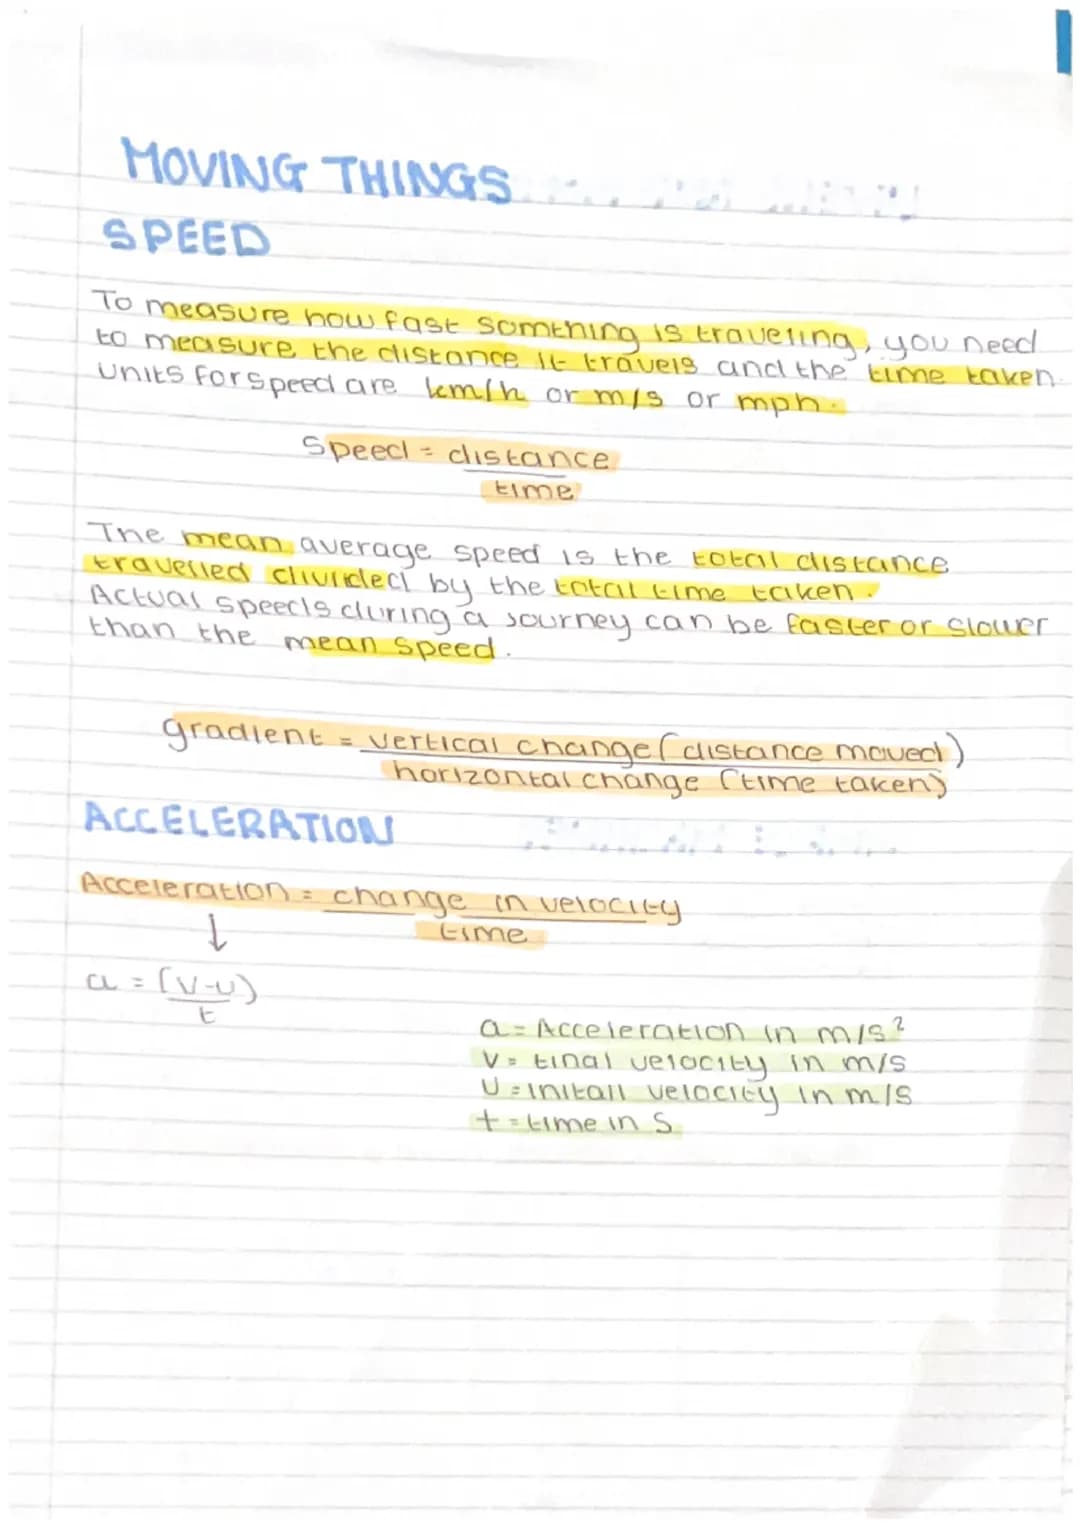 MOVING THINGS
SPEED
To measure how fast somthing is traveling, you need
to measure the distance it travels and the time taken.
Units for speed are km/h or m/s or mph.
Speed = distance
time
The mean average speed is the total distance
travelled divided by the total time taken.
Actual speeds during a journey can be faster or slower
than the mean speed.
gradient = vertical change (distance moved)
horizontal change (time taken)
ACCELERATION
Acceleration = change in velocity
time
↓
a = (v-u)
t
a = Acceleration in m/s²
v = final velocity in m/s
u = initall velocity in m/s
t = time in s